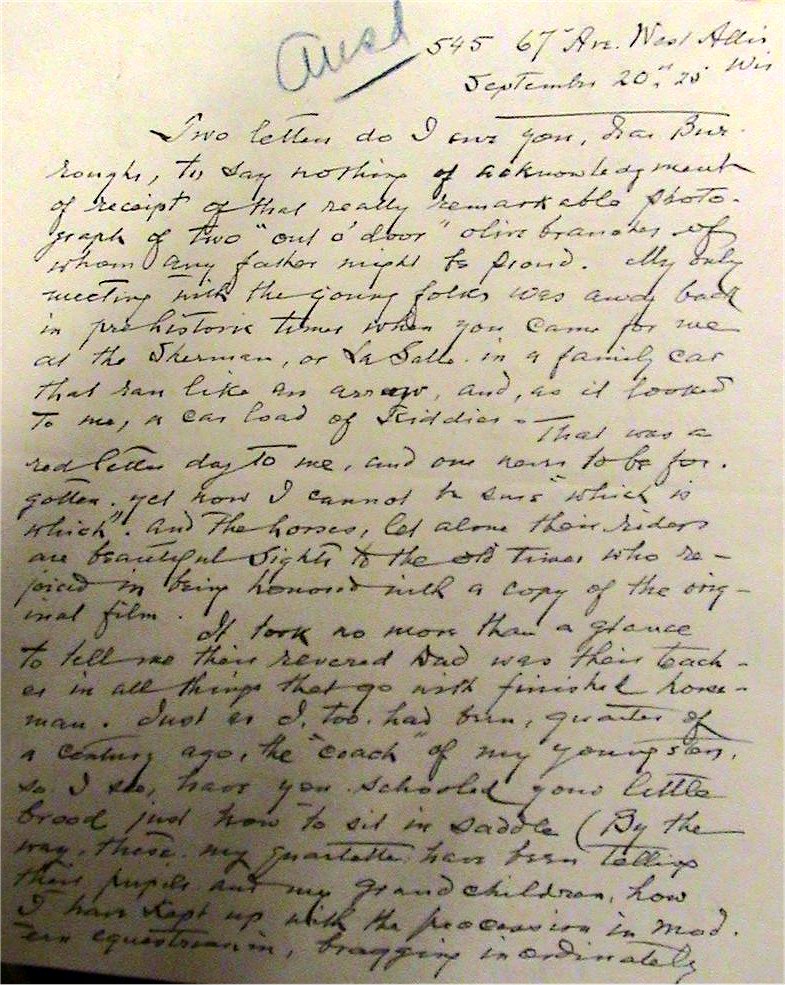 Ansd
545 67" Ave. West Allis
September 20", 25 Wis
Two letters do I owe you, dear Bur-
roughs, to say nothing of acknowledgment
of receipt of that really remarkable photo-
graph of two "out o' door" olive branches of
whom any father might be proud. My only
meeting with the young folks was away back
in prehistoric times when you came for me
at the Sherman, or La Salle in a family car
that ran like an arrow, and, as it looked
to me, a car load of Kiddies. That was a
red letter day to me, and one never to be for-
gotten. Yet now I cannot be sure "which is
which". And the horses, let alone their riders
are beautiful sights to the old timer who re-
joiced in being honored with a copy of the orig-
inal film. It took no more than a glance
to tell me their revered Dad was their teach-
er in all things that go with finished horse-
man. Just as I, too, had been, quarter of
a century ago, the "coach" of my youngsters,
so I see, have you schooled your little
brood just how to sit in saddle (By the
way, these, my quartette have been telling
their pupils and my grandchildren, how
I have kept up with the procession in mod-
ern equestrianism, bragging inordinately